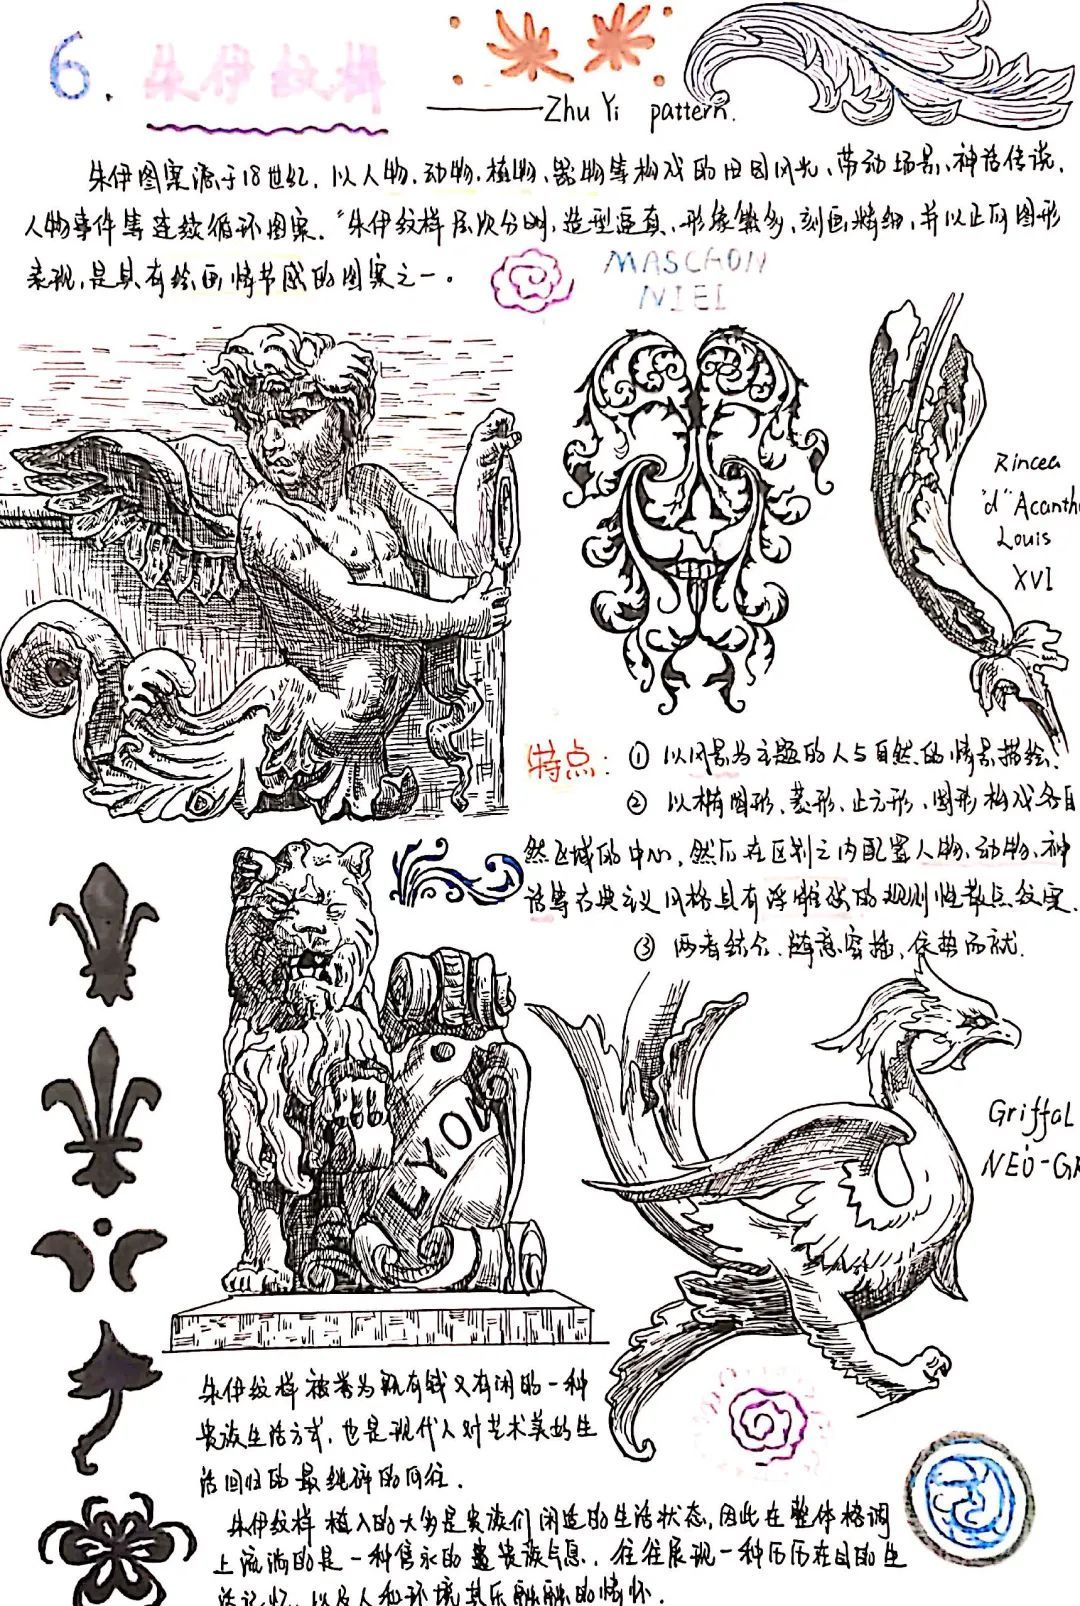 6. 朱伊纹样
Zhu Yi pattern.
朱伊图案源于18世纪.以人物.动物.植物、器物等构成的田园风光、劳动场景、神话传说.
人物事件等连续循环图案.“朱伊纹样层次分明,造型逼真、形象繁多,刻画精细,并以正向图形
表现,是具有绘画情节感的图案之一。
MASCAON
NIEL
Rincea
"d" Acanth
Louis
XVI
特点: ① 以风景为主题的人与自然的情景描绘.
② 以椭圆形、菱形、正方形、圆形构成各自
然区域的中心,然后在区划之内配置人物、动物、神
话等古典主义风格具有浮雕感的规则性散点纹案.
③ 两者结合.随意穿插、依势而就.
LYON
Griffal
NEO-GR
朱伊纹样被誉为既有钱又有闲的一种
贵族生活方式.也是现代人对艺术美好生
活回归的最纯粹的向往.
朱伊纹样植入的大多是贵族们闲适的生活状态,因此在整体格调
上流淌的是一种隽永的贵族气息.往往展现一种历历在目的生
活记忆.以及人和环境其乐融融的情怀.